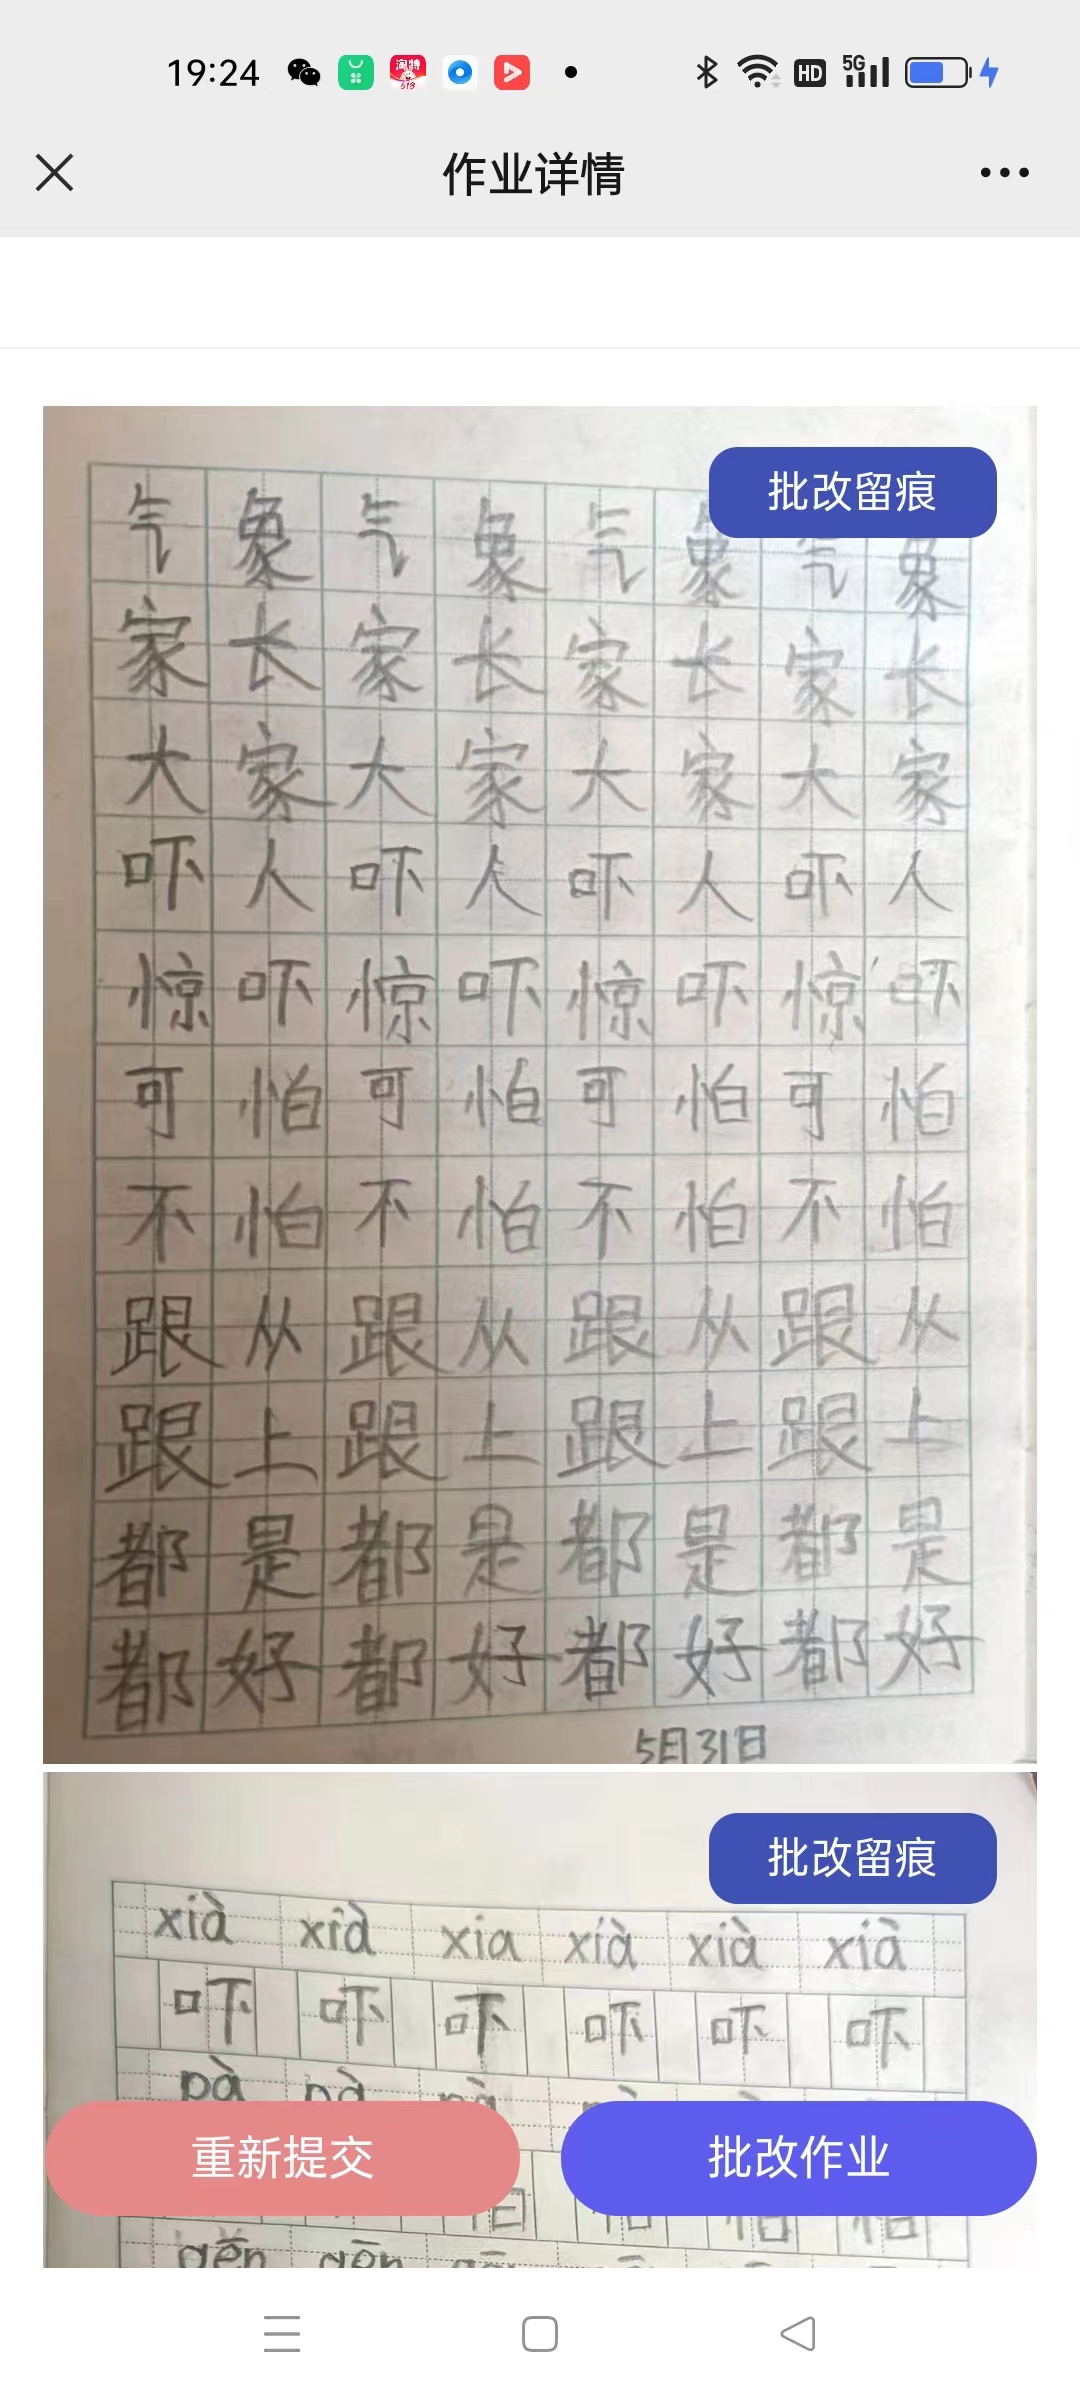 19:24 淘特 618 HD 5G
作业详情
批改留痕
气象气象气象气象
家长家长家长家长
大家大家大家大家
吓人吓人吓人吓人
惊吓惊吓惊吓惊吓
可怕可怕可怕可怕
不怕不怕不怕不怕
跟从跟从跟从跟从
跟上跟上跟上跟上
都是都是都是都是
都好都好都好都好
5月31日
批改留痕
xià xià xia xià xià xià
吓 吓 吓 吓 吓 吓
pà pà pà
重新提交 批改作业
gēn gēn